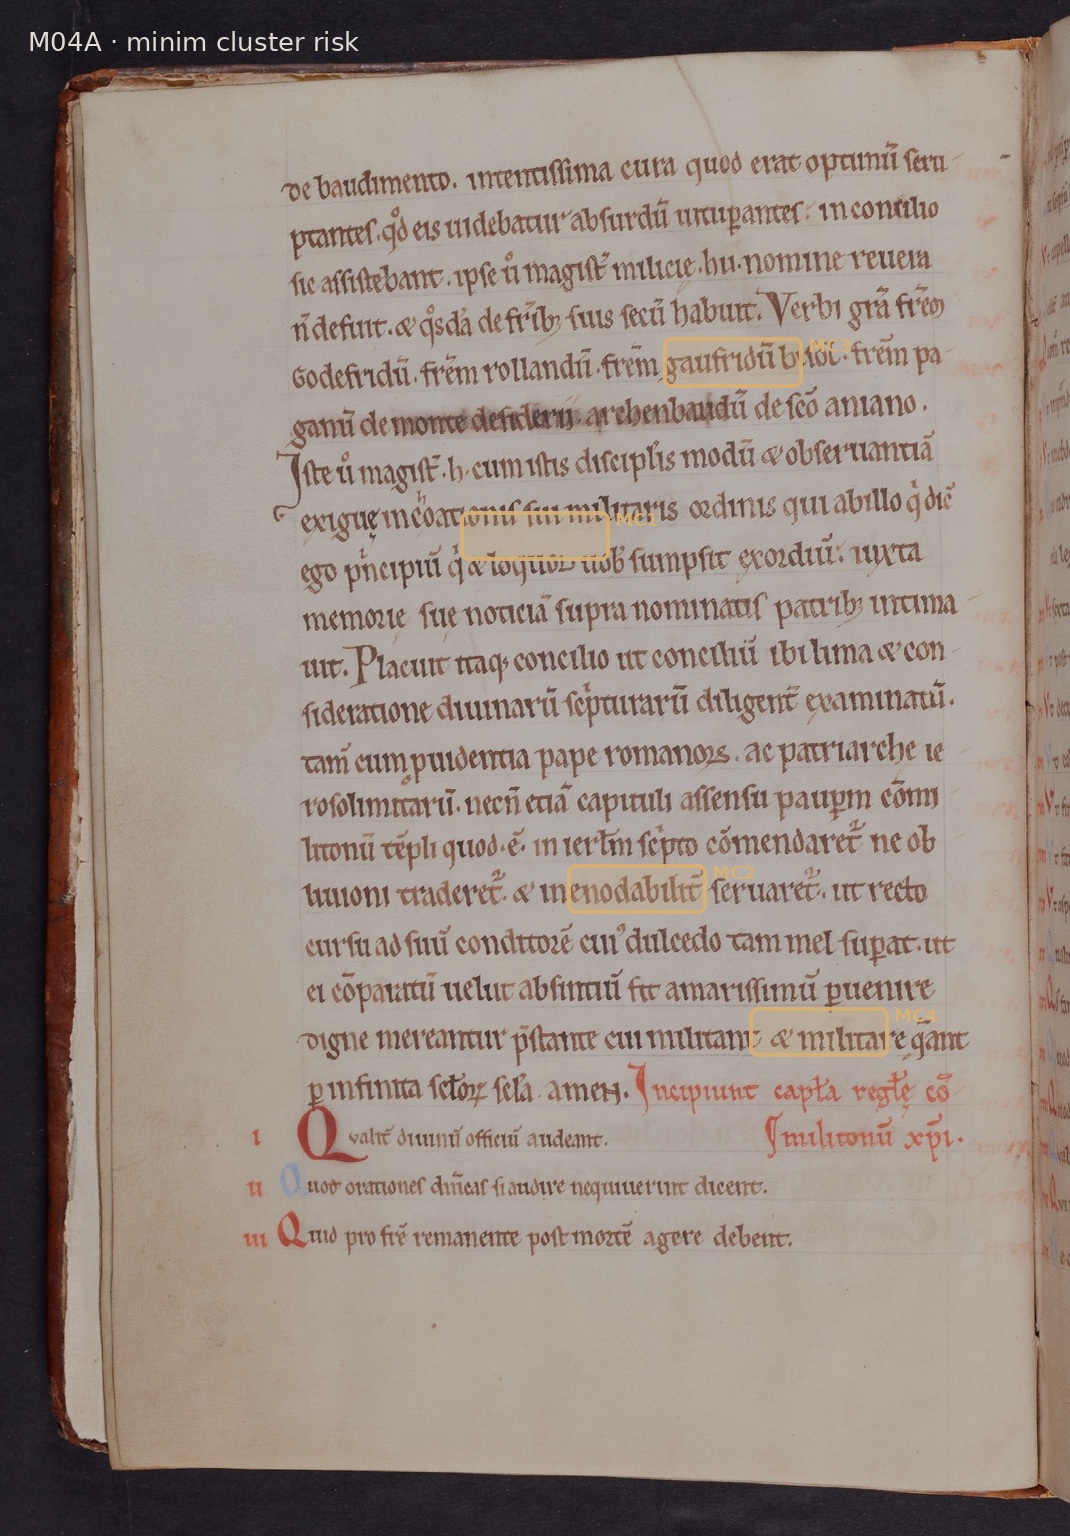 M04A · minim cluster risk
de baudimento. intentissima cura quod erat optimū scru
ptantes. qd̊ eis uidebatur absurdū uitup̲antes. in concilio
sic assistebant. ipse ů magist̄ milicię .hu. nomine reuera
n̄ defuit. & qͦsdā de fr̄ib; suis secū habuit. Verbi grā fr̄em
Godefridū. frēm rollandū. frēm gaufridū MC3 frēm pa
ganū de monte desiderii. archenbaudū de scō aniano.
Iste ů magist̄ .h. cum istis discipl̄is modū & obseruantiā
exiguę inc̊oationis sui militaris ordinis qui ab illo q̇ dic̄
MC1
ego pͥncipiū q̇ & loquor uob̄ sumpsit exordiū. iuxta
memorię suę noticiā supra nominatis patrib; intima
uit. Placuit itaq; concilio ut conciliū ibi lima & con
sideratione diuinarū scͥpturarū diligent̄ examinatū.
tam̄ cum puidentia pape romanorꝝ. ac patriarche ie
rosolimitarū. necn̄ etiā capituli assensu paup̲m cōmi
litonū tēpli quod .ē. in ierl̄m scͥpto cōmendaret᷑ ne ob
liuioni traderet᷑. & inenodabilit̄ MC2 seruaret᷑. ut recto
cursu ad suū conditorē cui᷒ dulcedo tam mel sup̲at. ut
ei cōparatū uelut absintiū sit amarissimū p̲uenire
MC4
digne mereantur p̄stante cui militant & militare q̄ant
p̲ infinita scl̄orꝝ scl̄a. amen. Incipiunt capl̄a regl̄ę cō
militonū xp̄i.
i Qvalit̄ diuinū officiū audeant.
ii Quot orationes dn̄icas si audire nequiuerint dicent.
iii Quid pro fr̄e remanente post mortē agere debent.